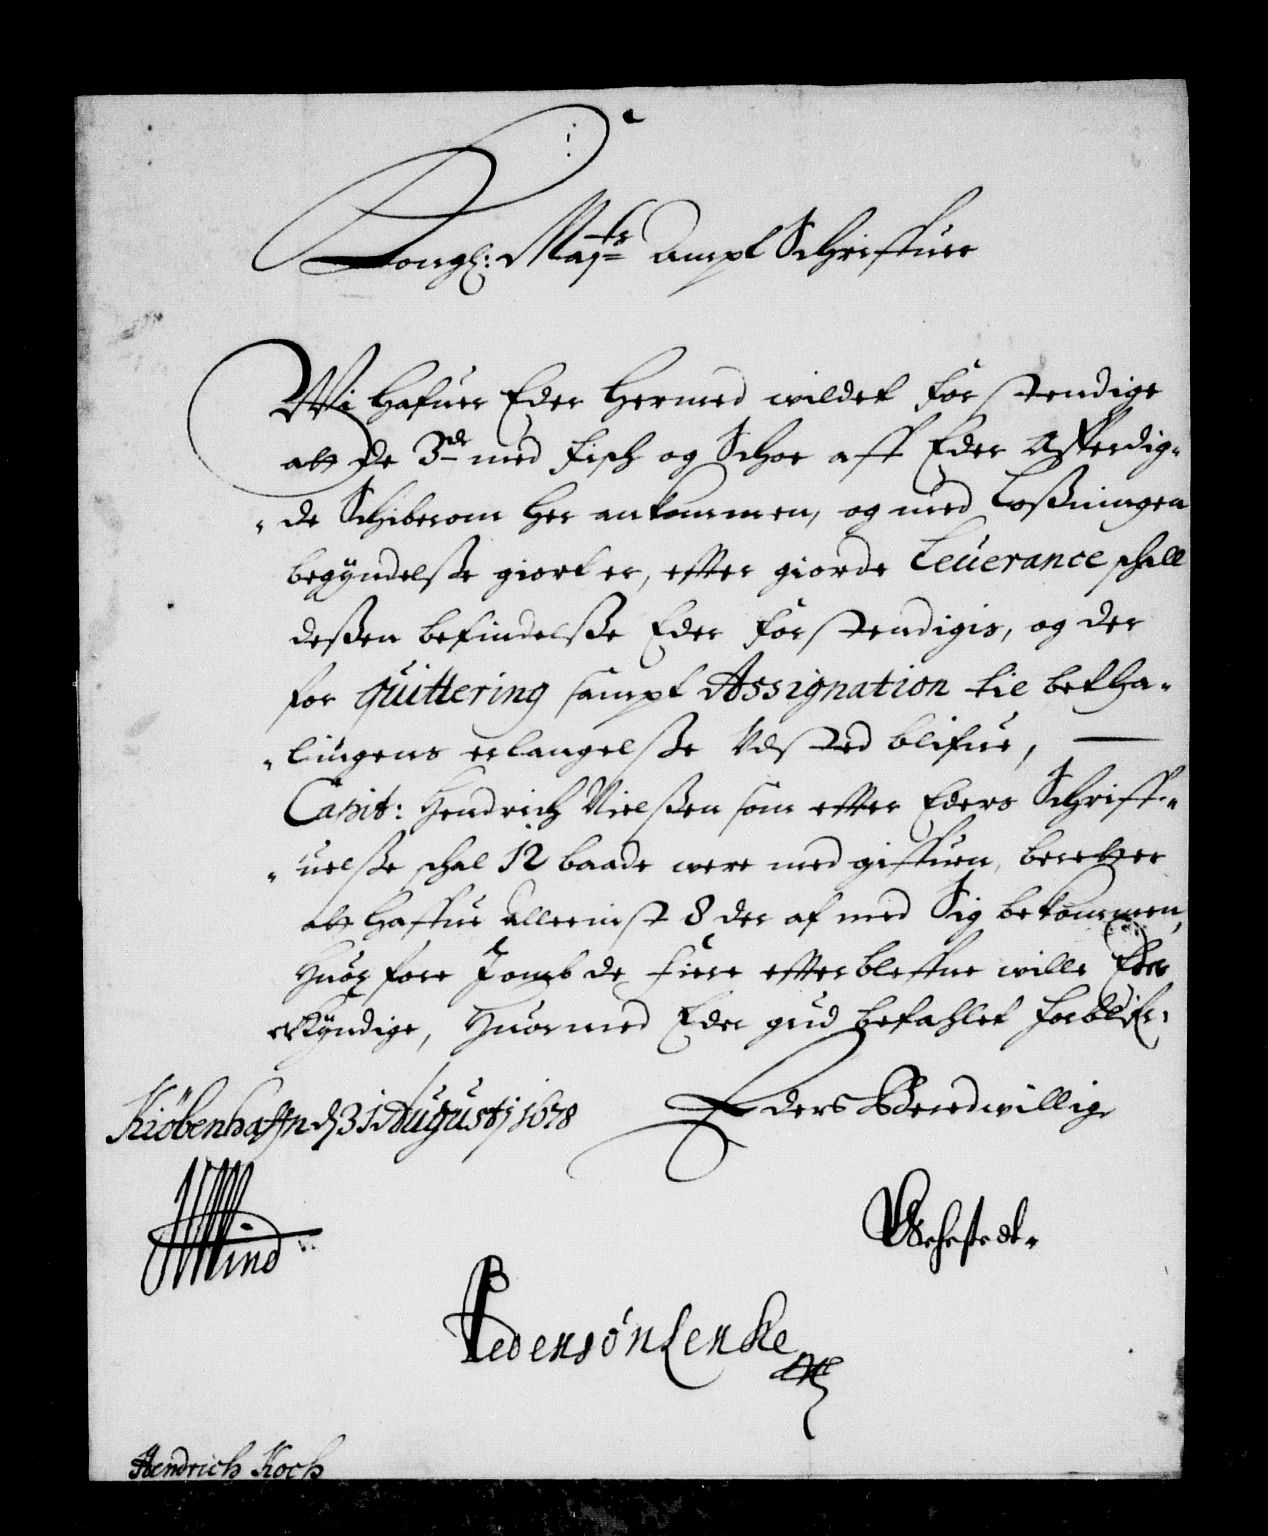 Kongl: Maj:ts Ampt Schriffuer
Wi hafuer Eder hermed wildet forstendige
att de 3de med fisch og Schoe aff Eder Afferdig-
de Schiberom her ankommen, og med Loßningen
begyndelße giort er, effter giorde Leuerance schall
deßen befindelße Eder forstendigis, og der
for quittering sampt Assignation til betha-
lingens erlangelße Udsted blifue,
Capit: Hendrich Nielßen som effter Eders Schriff-
uelße schal 12 baade were med giffuen, beretter
att haffue alleeinst 8 der af med Sig bekommen,
Huor fore I omb de fiere effterblefne wille Eder
erkyndige, Huormed Eder gud befahlet forblifr:
Kiöbenhaffn d 31 Augustj 1678
Eders Beredwillige
Wind
Wehestedt
Pedersön Lerke
Hendrich Koch